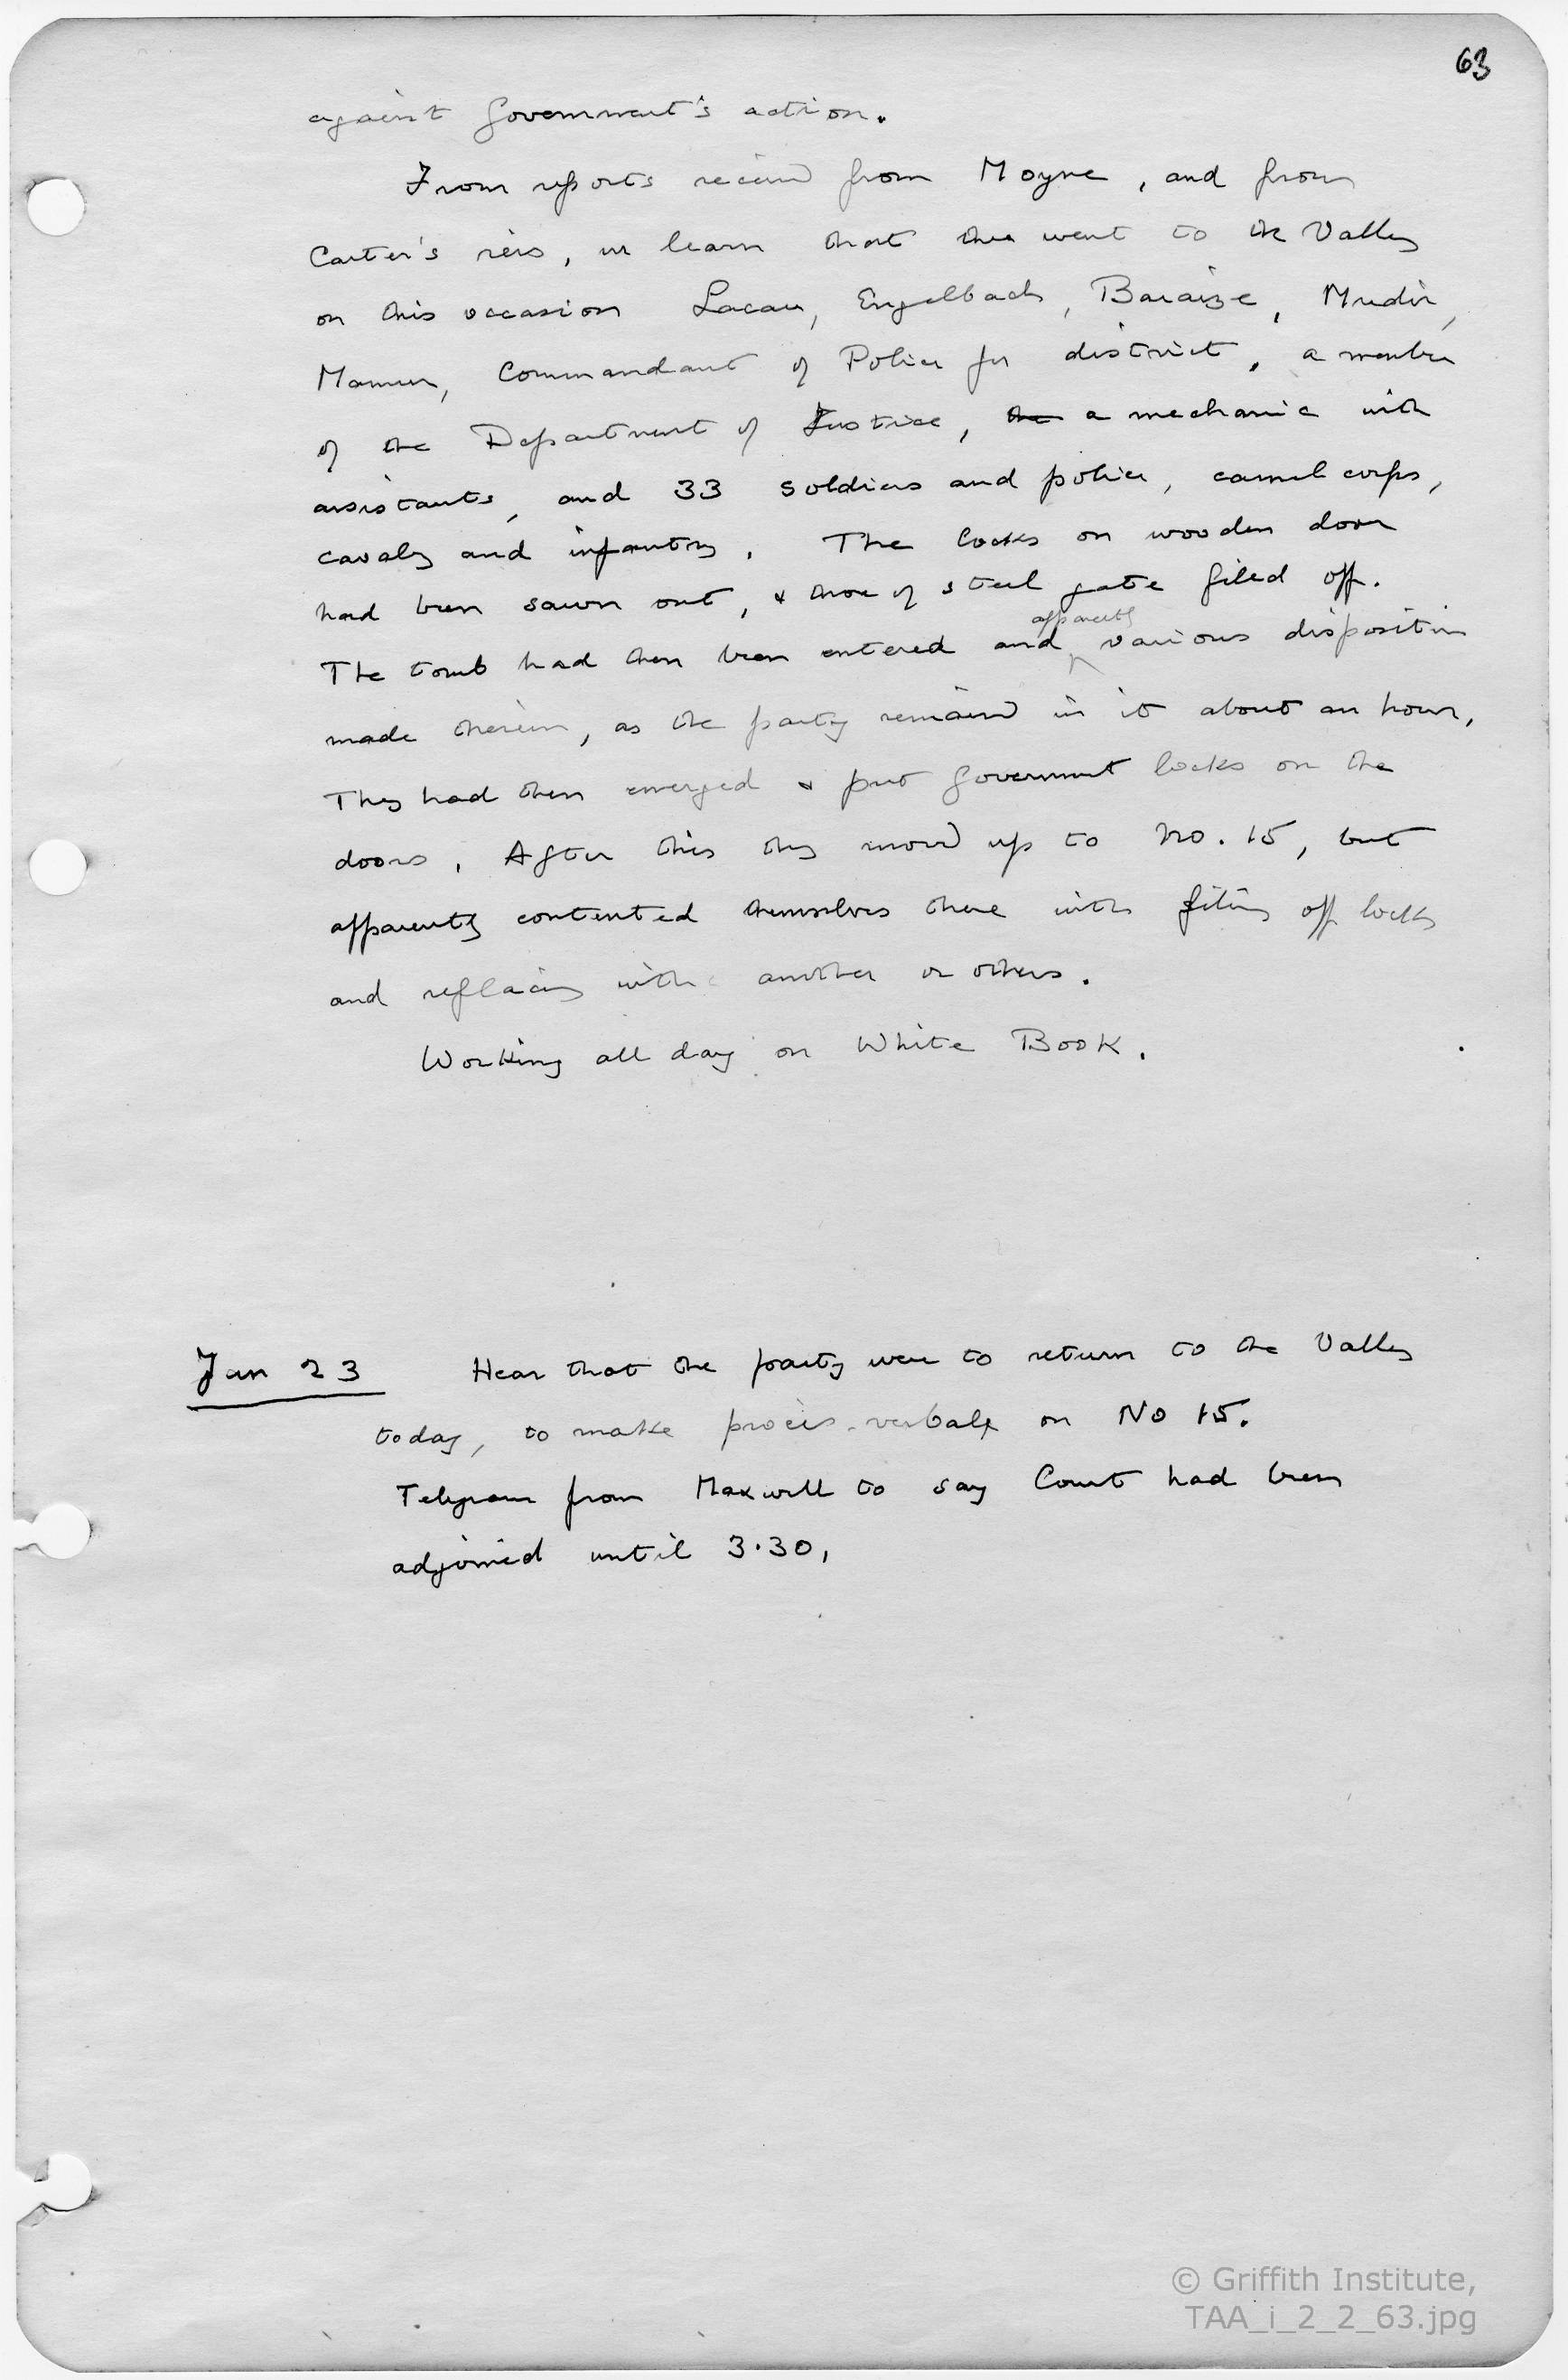 63
against Government's action.
From reports received from Moyne, and from
Carter's reis, we learn that there went to the Valley
on this occasion Lacau, Engelbach, Baraize, Mudir,
Mamur, Commandant of Police for district, a member
of the Department of Justice, the a mechanic with
assistants, and 33 soldiers and police, camel corps,
cavalry and infantry. The locks on wooden door
had been sawn out, & those of steel gate filed off.
apparently
The tomb had then been entered and various dispositions
made therein, as the party remained in it about an hour.
They had then emerged & put Government locks on the
doors. After this they moved up to No. 15, but
apparently contented themselves there with filing off locks
and replacing with another or others.
Working all day on White Book.
Jan 23 Hear that the party were to return to the Valley
today, to make procès-verbal on No 15.
Telegram from Maxwell to say Court had been
adjourned until 3.30,
© Griffith Institute,
TAA_i_2_2_63.jpg